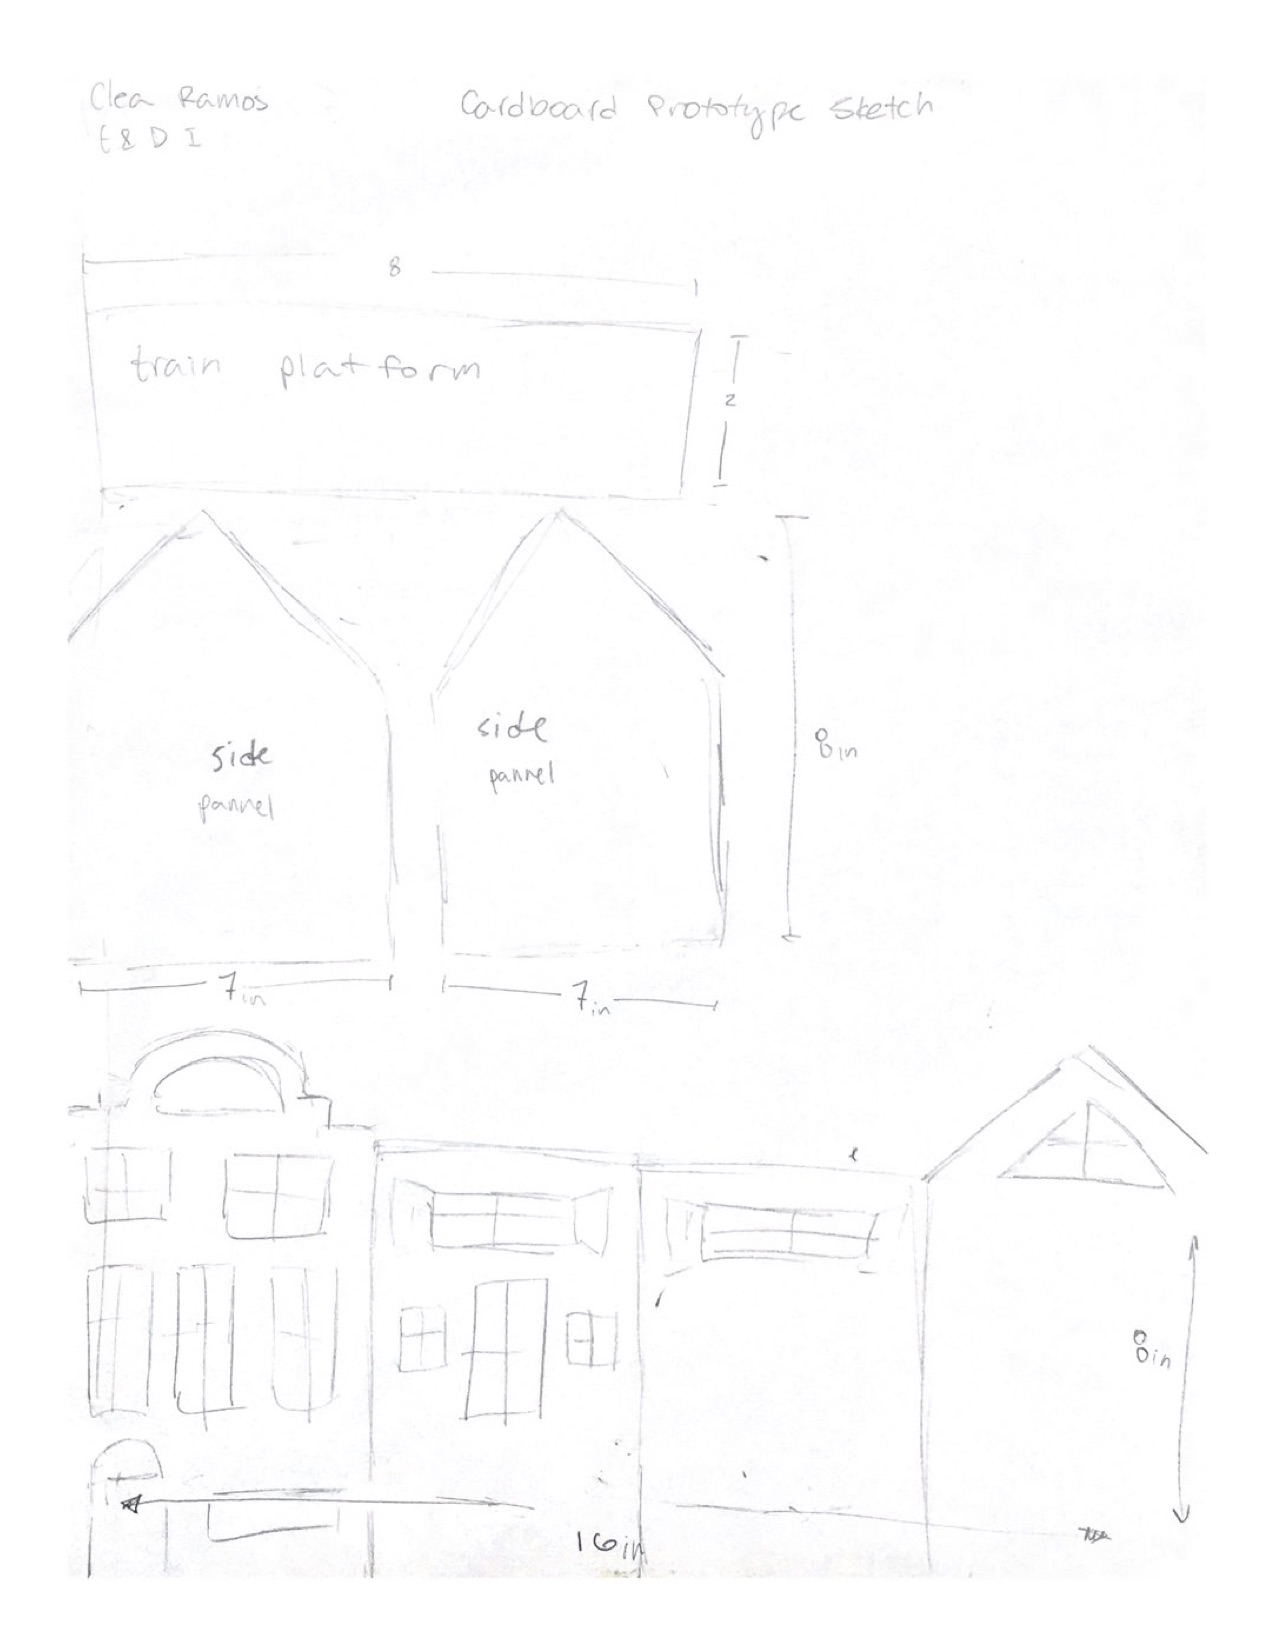 Clea Ramos
Cardboard Prototype Sketch
E & D I
8
train platform
2
side
pannel
side
pannel
8in
7in
7in
8in
16in